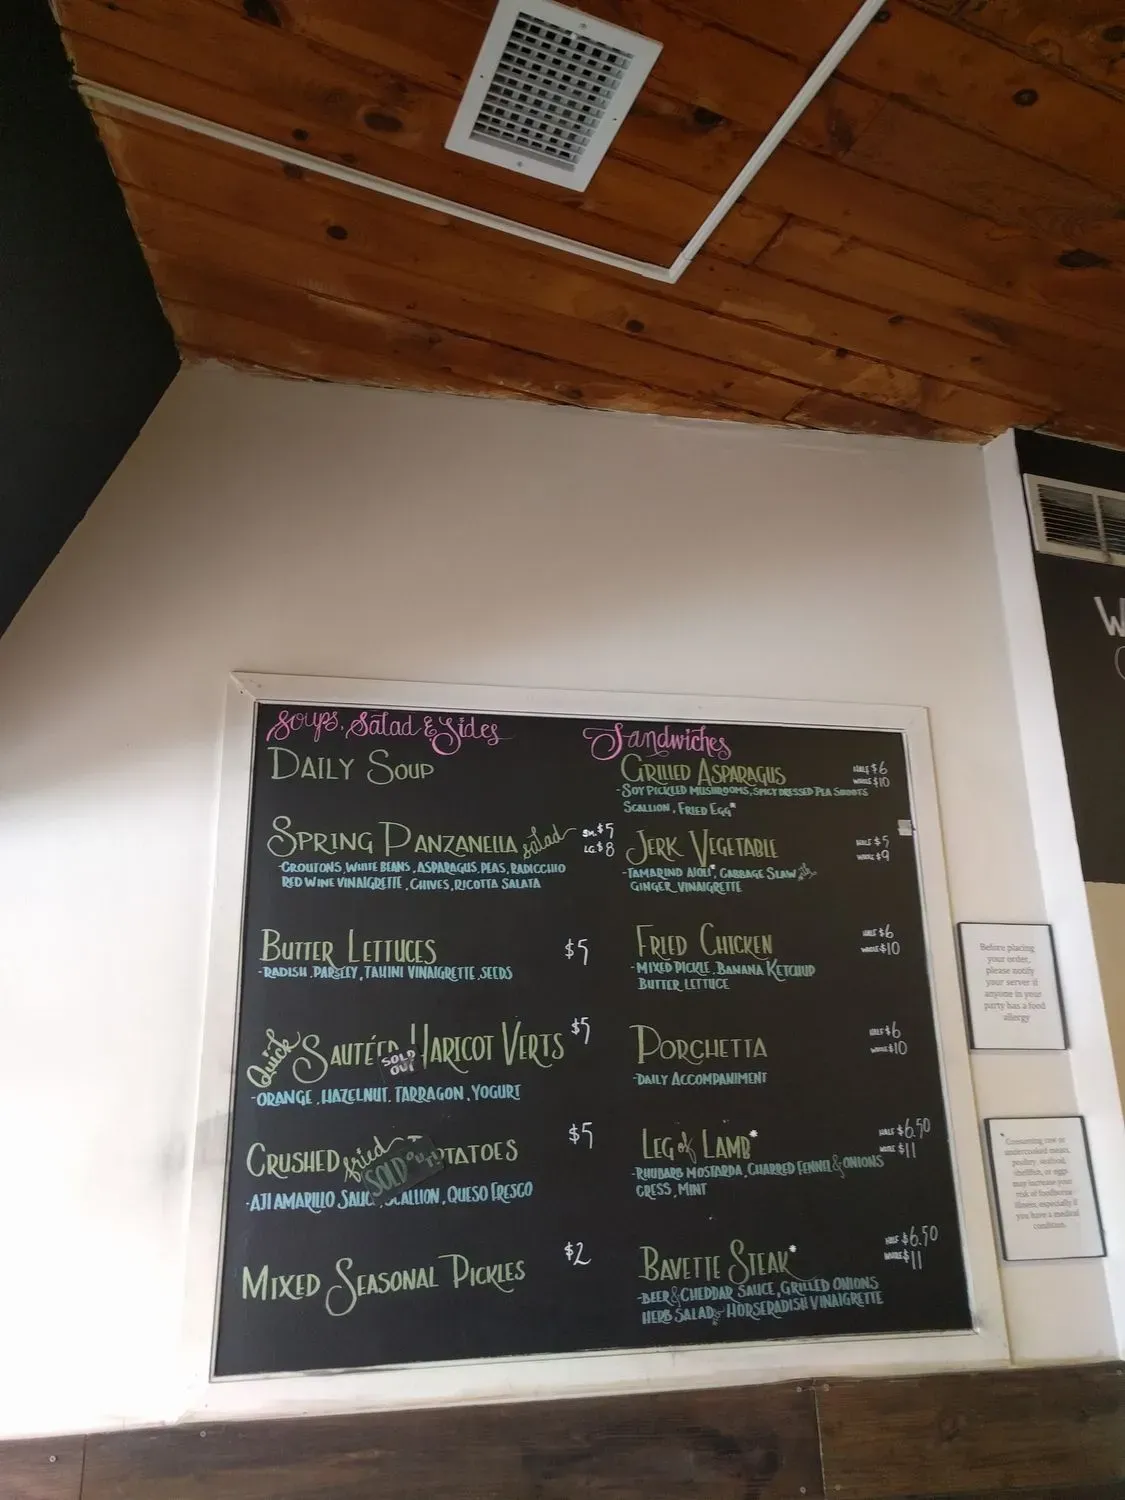 Soups, Salad & Sides
DAILY SOUP
SPRING PANZANELLA salad
SM. $5
LG. $8
-CROUTONS, WHITE BEANS, ASPARAGUS, PEAS, RADICCHIO
RED WINE VINAIGRETTE, CHIVES, RICOTTA SALATA
BUTTER LETTUCES $5
-RADISH, PARSLEY, TAHINI VINAIGRETTE, SEEDS
Quick SAUTÉED HARICOT VERTS $5
SOLD
OUT
-ORANGE, HAZELNUT, TARRAGON, YOGURT
CRUSHED fried POTATOES $5
SOLD OUT!
-AJI AMARILLO SAUCE, SCALLION, QUESO FRESCO
MIXED SEASONAL PICKLES $2
Sandwiches
GRILLED ASPARAGUS
HALF $6
WHOLE $10
-SOY PICKLED MUSHROOMS, SPICY DRESSED PEA SHOOTS
SCALLION, FRIED EGG*
JERK VEGETABLE
HALF $5
WHOLE $9
-TAMARIND AIOLI*, CABBAGE SLAW
GINGER VINAIGRETTE
FRIED CHICKEN
HALF $6
WHOLE $10
-MIXED PICKLE, BANANA KETCHUP
BUTTER LETTUCE
PORCHETTA
HALF $6
WHOLE $10
-DAILY ACCOMPANIMENT
LEG of LAMB*
HALF $6.50
WHOLE $11
-RHUBARB MOSTARDA, CHARRED FENNEL & ONIONS
CRESS, MINT
BAVETTE STEAK*
HALF $6.50
WHOLE $11
-BEER & CHEDDAR SAUCE, GRILLED ONIONS
HERB SALAD HORSERADISH VINAIGRETTE
Before placing
your order,
please notify
your server if
anyone in your
party has a food
allergy
*Consuming raw or
undercooked meats,
poultry, seafood,
shellfish, or eggs
may increase your
risk of foodborne
illness, especially if
you have a medical
condition.